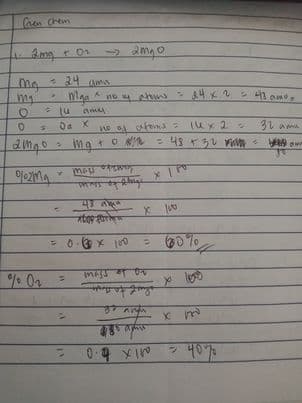 Gen Chem
1. 2mg + O2 → 2mgO
Mg = 24 amu
Mg = Mga × no of atoms = 24 × 2 = 48 amu
O = 16 amu
O = Oa × no of atoms = 16 × 2 = 32 amu
2MgO = Mg + O = 48 + 32 = amu
%2Mg = mass of 2mg × 100
mass of 2mgo
= 48 amu × 100
= 0.6 × 100 = 60%
% O2 = mass of O2 × 100
mass of 2mgo
= 32 amu × 100
amu
= 0.4 × 100 = 40%